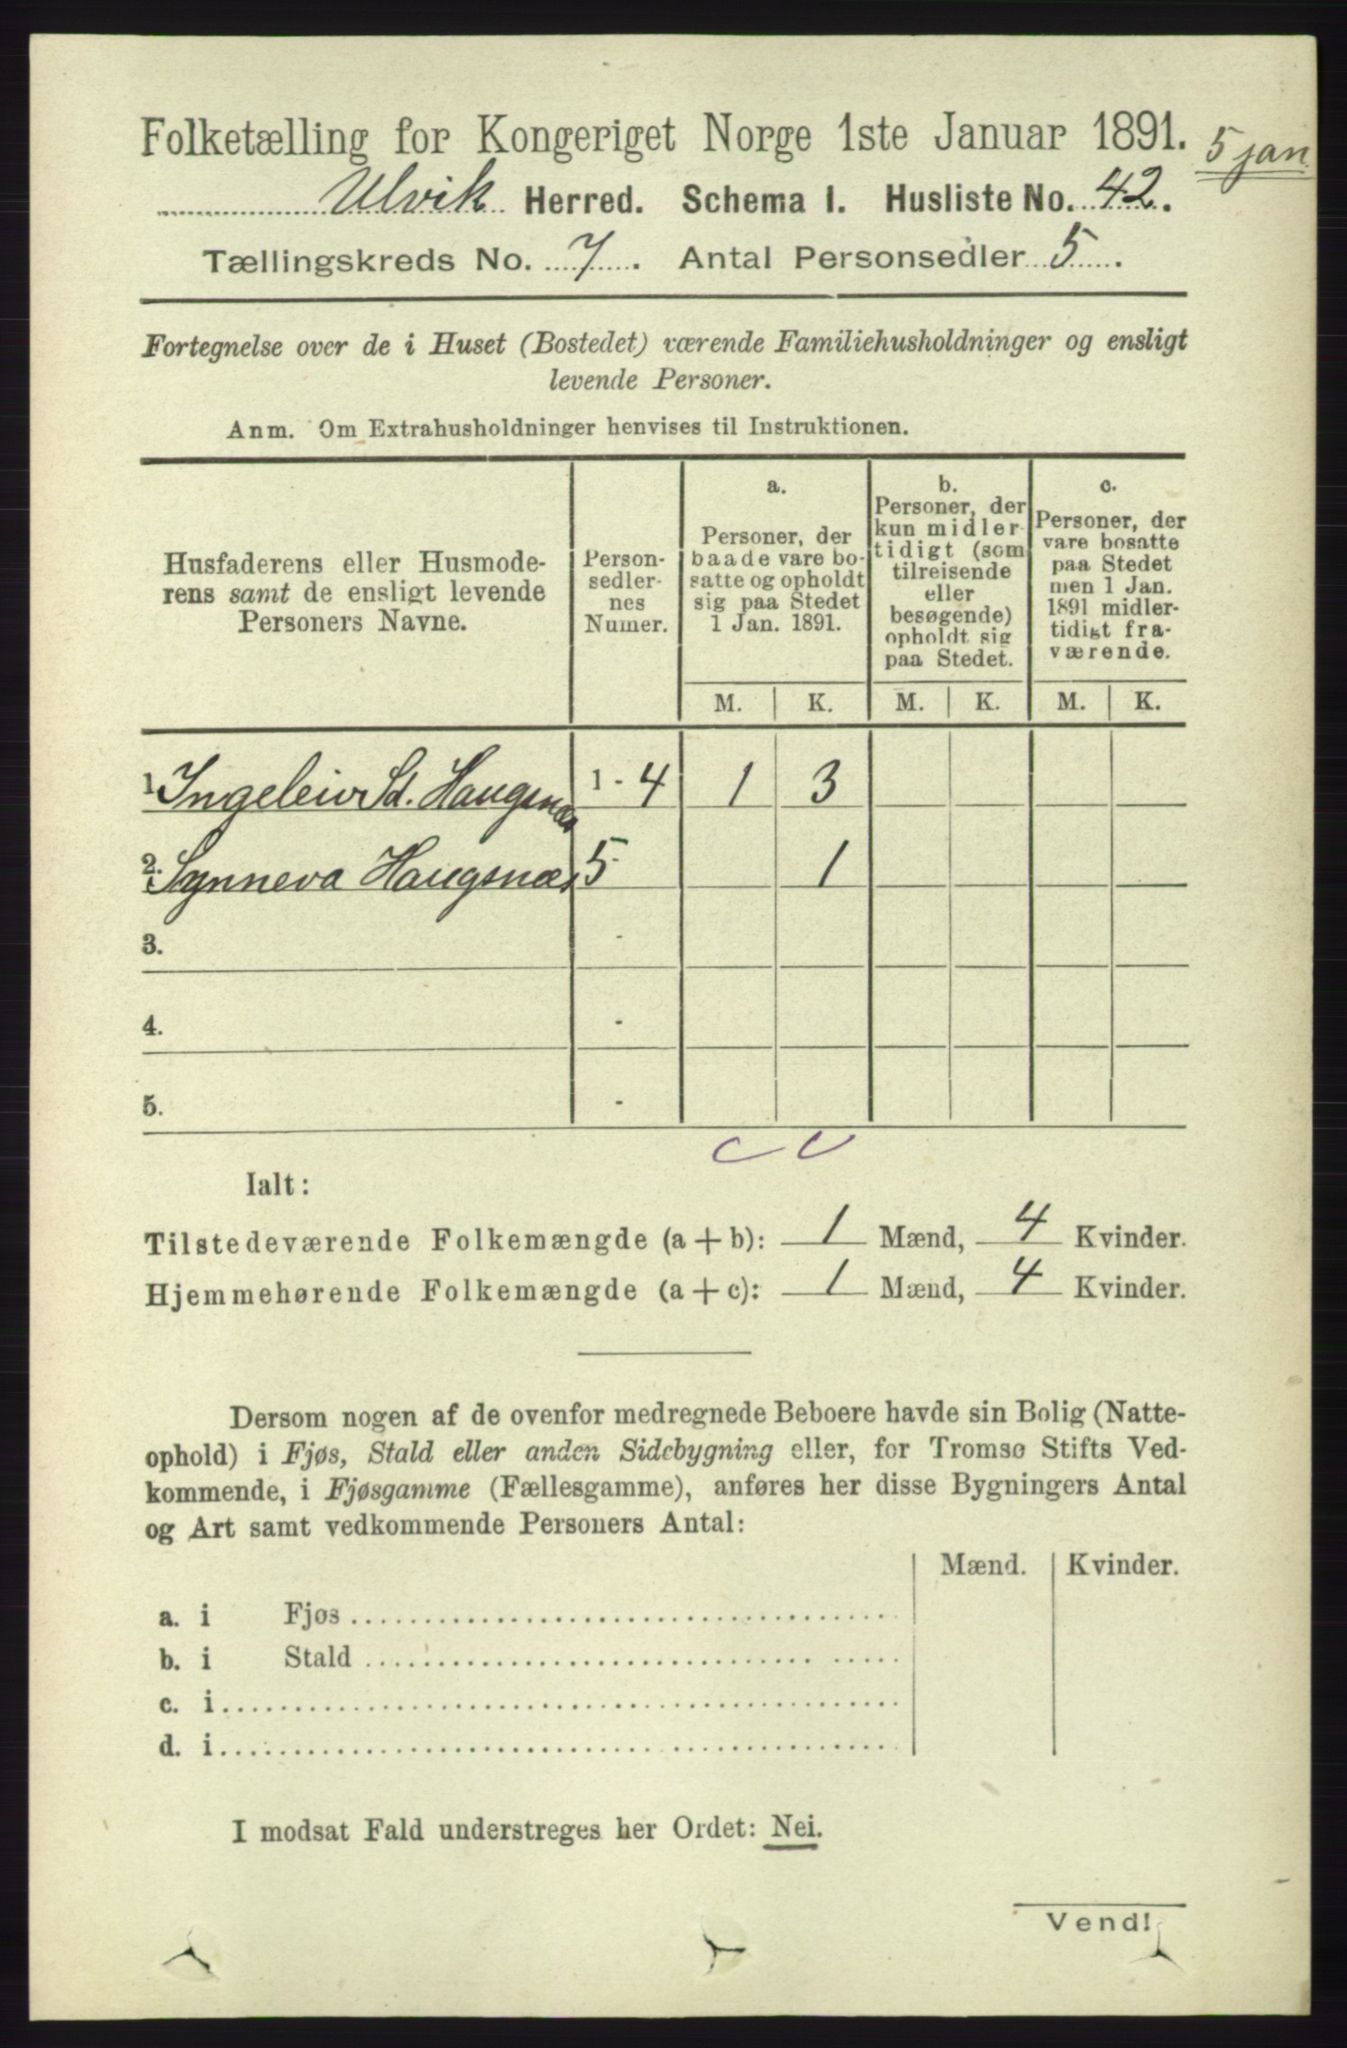 Folketælling for Kongeriget Norge 1ste Januar 1891.
5 jan
Ulvik Herred. Schema I. Husliste No. 42.
Tællingskreds No. 7. Antal Personsedler 5.
Fortegnelse over de i Huset (Bostedet) værende Familiehusholdninger og ensligt
levende Personer.
Anm. Om Extrahusholdninger henvises til Instruktionen.
Husfaderens eller Husmode-
rens samt de ensligt levende
Personers Navne.
Person-
sedler-
nes
Numer.
a.
Personer, der
baade vare bo-
satte og opholdt
sig paa Stedet
1 Jan. 1891.
b.
Personer, der
kun midler-
tidigt (som
tilreisende
eller
besøgende)
opholdt sig
paa Stedet.
c.
Personer, der
vare bosatte
paa Stedet
men 1 Jan.
1891 midler-
tidigt fra-
værende.
M. K. M. K. M. K.
1. Ingeleiv Sd. Haugsnæs 1 - 4 1 3
2. Synneva Haugsnæs 5 - 1
3. -
4. -
5. -
Ialt:
Tilstedeværende Folkemængde (a + b): 1 Mænd, 4 Kvinder.
Hjemmehørende Folkemængde (a + c): 1 Mænd, 4 Kvinder.
Dersom nogen af de ovenfor medregnede Beboere havde sin Bolig (Natte-
ophold) i Fjøs, Stald eller anden Sidebygning eller, for Tromsø Stifts Ved-
kommende, i Fjøsgamme (Fællesgamme), anføres her disse Bygningers Antal
og Art samt vedkommende Personers Antal:
Mænd. Kvinder.
a. i Fjøs
b. i Stald
c. i
d. i
I modsat Fald understreges her Ordet: Nei.
Vend!